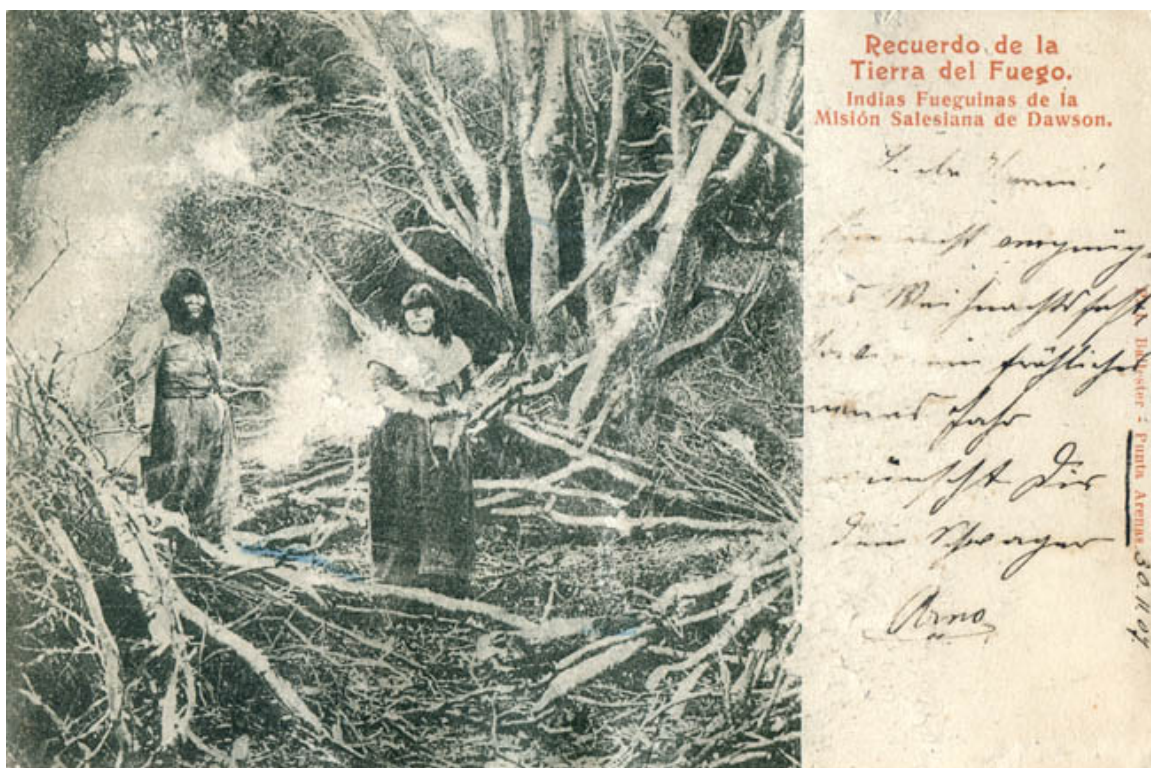 Recuerdo de la
Tierra del Fuego.
Indias Fueguinas de la
Misión Salesiana de Dawson.
recht vergnüg
Weihnachtsfest
ein fröhliches
neues Jahr
wünscht Dir
Dein Schwager
Arno
Ballester - Punta Arenas